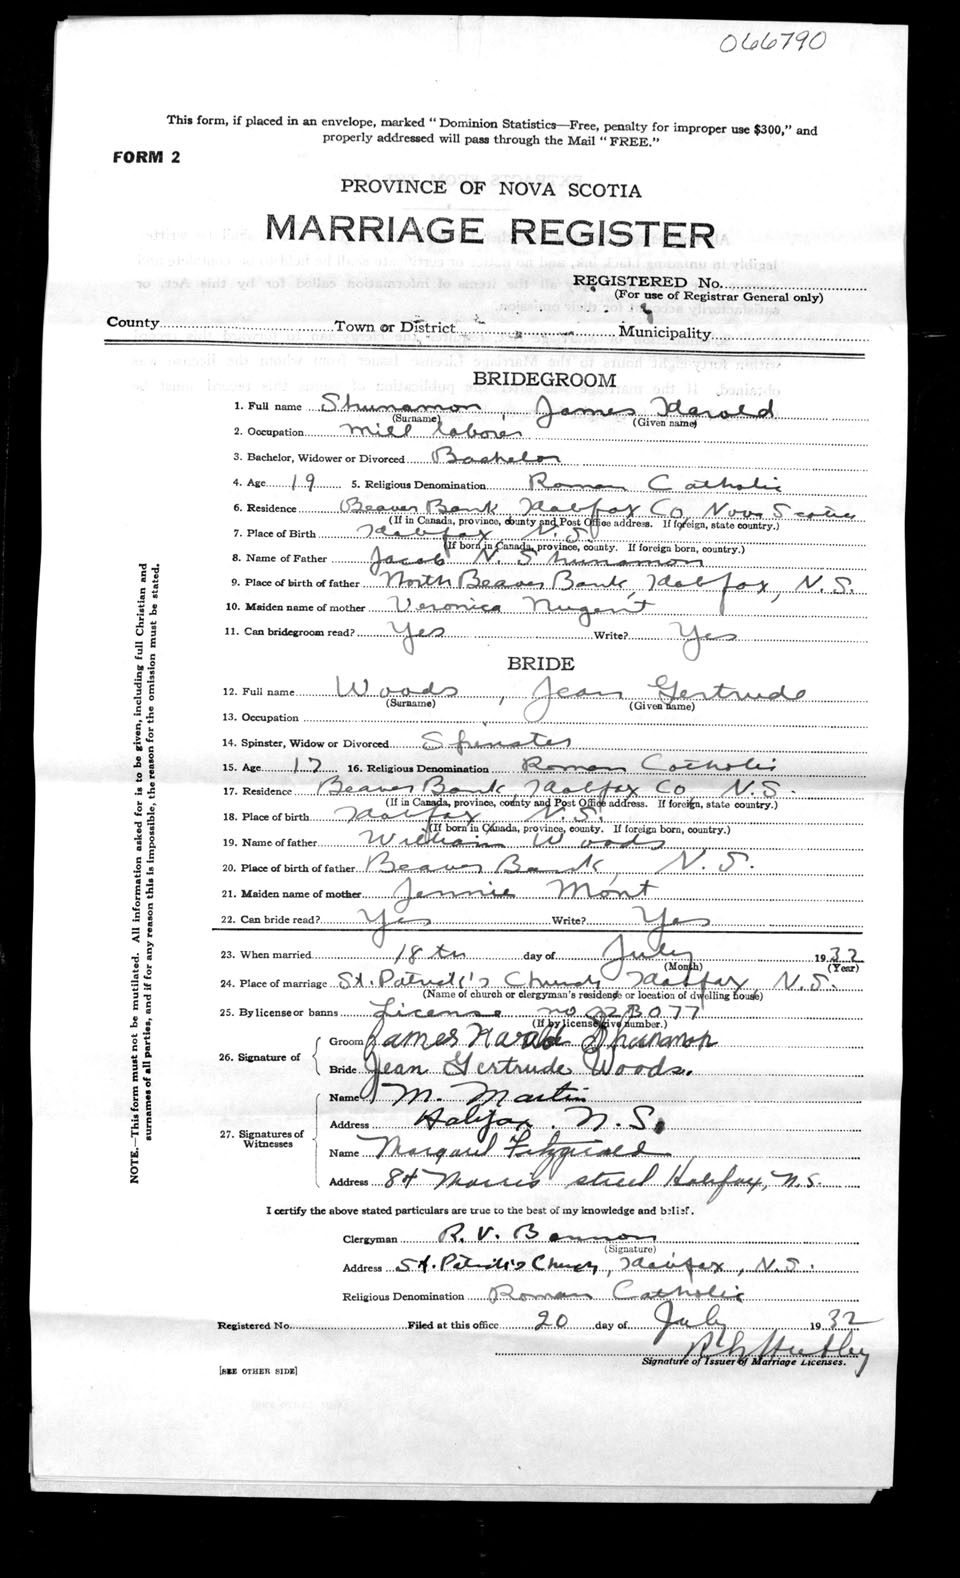 066790
This form, if placed in an envelope, marked "Dominion Statistics—Free, penalty for improper use $300," and
properly addressed will pass through the Mail "FREE."
FORM 2
PROVINCE OF NOVA SCOTIA
MARRIAGE REGISTER
REGISTERED No.
(For use of Registrar General only)
County Town or District Municipality
BRIDEGROOM
1. Full name Shunamon, James Harold
(Surname) (Given name)
2. Occupation mill laborer
3. Bachelor, Widower or Divorced Bachelor
4. Age 19 5. Religious Denomination Roman Catholic
6. Residence Beaver Bank, Halifax Co, Nova Scotia
(If in Canada, province, county and Post Office address. If foreign, state country.)
7. Place of Birth Halifax N.S.
(If born in Canada, province, county. If foreign born, country.)
8. Name of Father Jacob N. Shunamon
9. Place of birth of father North Beaver Bank, Halifax, N.S.
10. Maiden name of mother Veronica Nugent
11. Can bridegroom read? Yes Write? Yes
BRIDE
12. Full name Woods, Jean Gertrude
(Surname) (Given name)
13. Occupation
14. Spinster, Widow or Divorced Spinster
15. Age 17 16. Religious Denomination Roman Catholic
17. Residence Beaver Bank, Halifax Co N.S.
(If in Canada, province, county and Post Office address. If foreign, state country.)
18. Place of birth Halifax N.S.
(If born in Canada, province, county. If foreign born, country.)
19. Name of father William Woods
20. Place of birth of father Beaver Bank, N.S.
21. Maiden name of mother Jennie Mont
22. Can bride read? Yes Write? Yes
23. When married 18th day of July 1932
(Month) (Year)
24. Place of marriage St. Patrick's Church, Halifax, N.S.
(Name of church or clergyman's residence or location of dwelling house)
25. By license or banns License no. 02B077
(If by license give number.)
26. Signature of
Groom James Harold Shunamon
Bride Jean Gertrude Woods.
27. Signatures of Witnesses
Name M. Martin
Address Halifax, N.S.
Name Margaret Fitzgerald
Address 84 Morris street Halifax, N.S.
I certify the above stated particulars are true to the best of my knowledge and belief.
Clergyman R. V. Bannon
(Signature)
Address St. Patrick's Church, Halifax, N.S.
Religious Denomination Roman Catholic
Registered No. Filed at this office 20 day of July 1932
Signature of Issuer of Marriage Licenses.
[SEE OTHER SIDE]
NOTE.—This form must not be mutilated. All information asked for is to be given, including full Christian and
surnames of all parties, and if for any reason this is impossible, the reason for the omission must be stated.